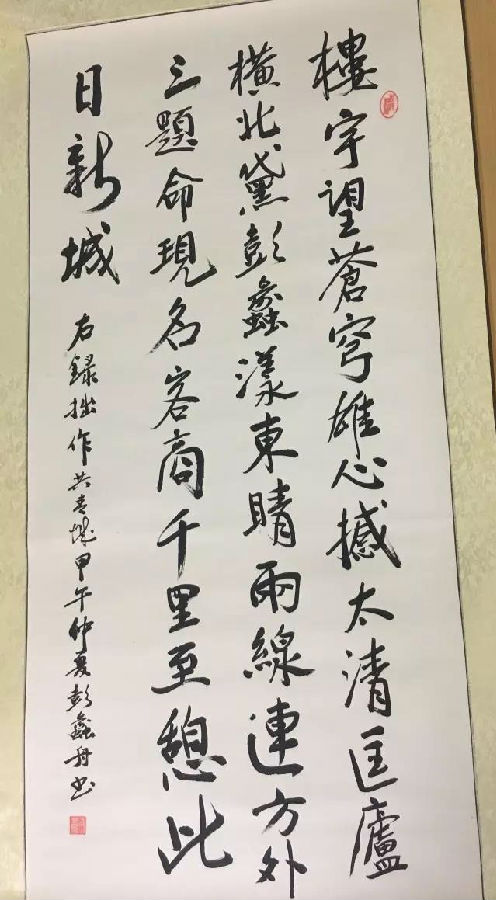 樓宇望蒼穹雄心撼太清匡廬
橫北黛彭蠡漾東晴兩線連方外
三題命現名客商千里至憩此
日新城
右錄拙作共青城甲午仲夏彭蠡舟书